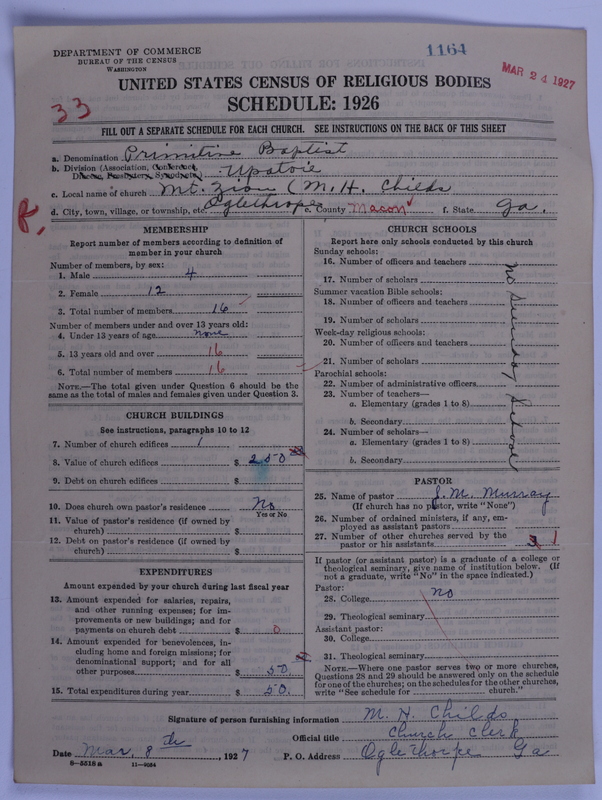 DEPARTMENT OF COMMERCE
BUREAU OF THE CENSUS
WASHINGTON
1164
MAR 24 1927
UNITED STATES CENSUS OF RELIGIOUS BODIES
SCHEDULE: 1926
33
FILL OUT A SEPARATE SCHEDULE FOR EACH CHURCH. SEE INSTRUCTIONS ON THE BACK OF THIS SHEET
a. Denomination Primitive Baptist
b. Division (Association, Conference, Diocese, Presbytery, Synod, etc.) Upatoie
c. Local name of church Mt. Zion (M. H. Childs
d. City, town, village, or township, etc. Oglethorpe e. County Macon f. State Ga.
R.
MEMBERSHIP
Report number of members according to definition of
member in your church
Number of members, by sex:
1. Male 4
2. Female 12
3. Total number of members 16
Number of members under and over 13 years old:
4. Under 13 years of age none
5. 13 years old and over 16
6. Total number of members 16
NOTE.—The total given under Question 6 should be the
same as the total of males and females given under Question 3.
CHURCH BUILDINGS
See instructions, paragraphs 10 to 12
7. Number of church edifices 1
8. Value of church edifices $ 250
9. Debt on church edifices $
10. Does church own pastor's residence No
Yes or No
11. Value of pastor's residence (if owned by
church) $
12. Debt on pastor's residence (if owned by
church) $
EXPENDITURES
Amount expended by your church during last fiscal year
13. Amount expended for salaries, repairs,
and other running expenses; for im-
provements or new buildings; and for
payments on church debt $ 0
14. Amount expended for benevolences, in-
cluding home and foreign missions; for
denominational support; and for all
other purposes $ 50
15. Total expenditures during year $ 50.
CHURCH SCHOOLS
Report here only schools conducted by this church
Sunday schools:
16. Number of officers and teachers
17. Number of scholars
Summer vacation Bible schools:
18. Number of officers and teachers
19. Number of scholars
Week-day religious schools:
20. Number of officers and teachers
21. Number of scholars
Parochial schools:
22. Number of administrative officers
23. Number of teachers—
a. Elementary (grades 1 to 8)
b. Secondary
24. Number of scholars—
a. Elementary (grades 1 to 8)
b. Secondary
No Sunday School
PASTOR
25. Name of pastor J. M. Murray
(If church has no pastor, write "None")
26. Number of ordained ministers, if any, em-
ployed as assistant pastors
27. Number of other churches served by the
pastor or his assistants 3 1
If pastor (or assistant pastor) is a graduate of a college or
theological seminary, give name of institution below. (If
not a graduate, write "No" in the space indicated.)
Pastor:
28. College no
29. Theological seminary
Assistant pastor:
30. College
31. Theological seminary
NOTE.—Where one pastor serves two or more churches,
Questions 28 and 29 should be answered only on the schedule
for one of the churches; on the schedules for the other churches,
write "See schedule for church."
Signature of person furnishing information M. H. Childs
Official title Church Clerk
Date Mar, 8th, 1927 P. O. Address Oglethorpe Ga
8—5518 a 11—9054